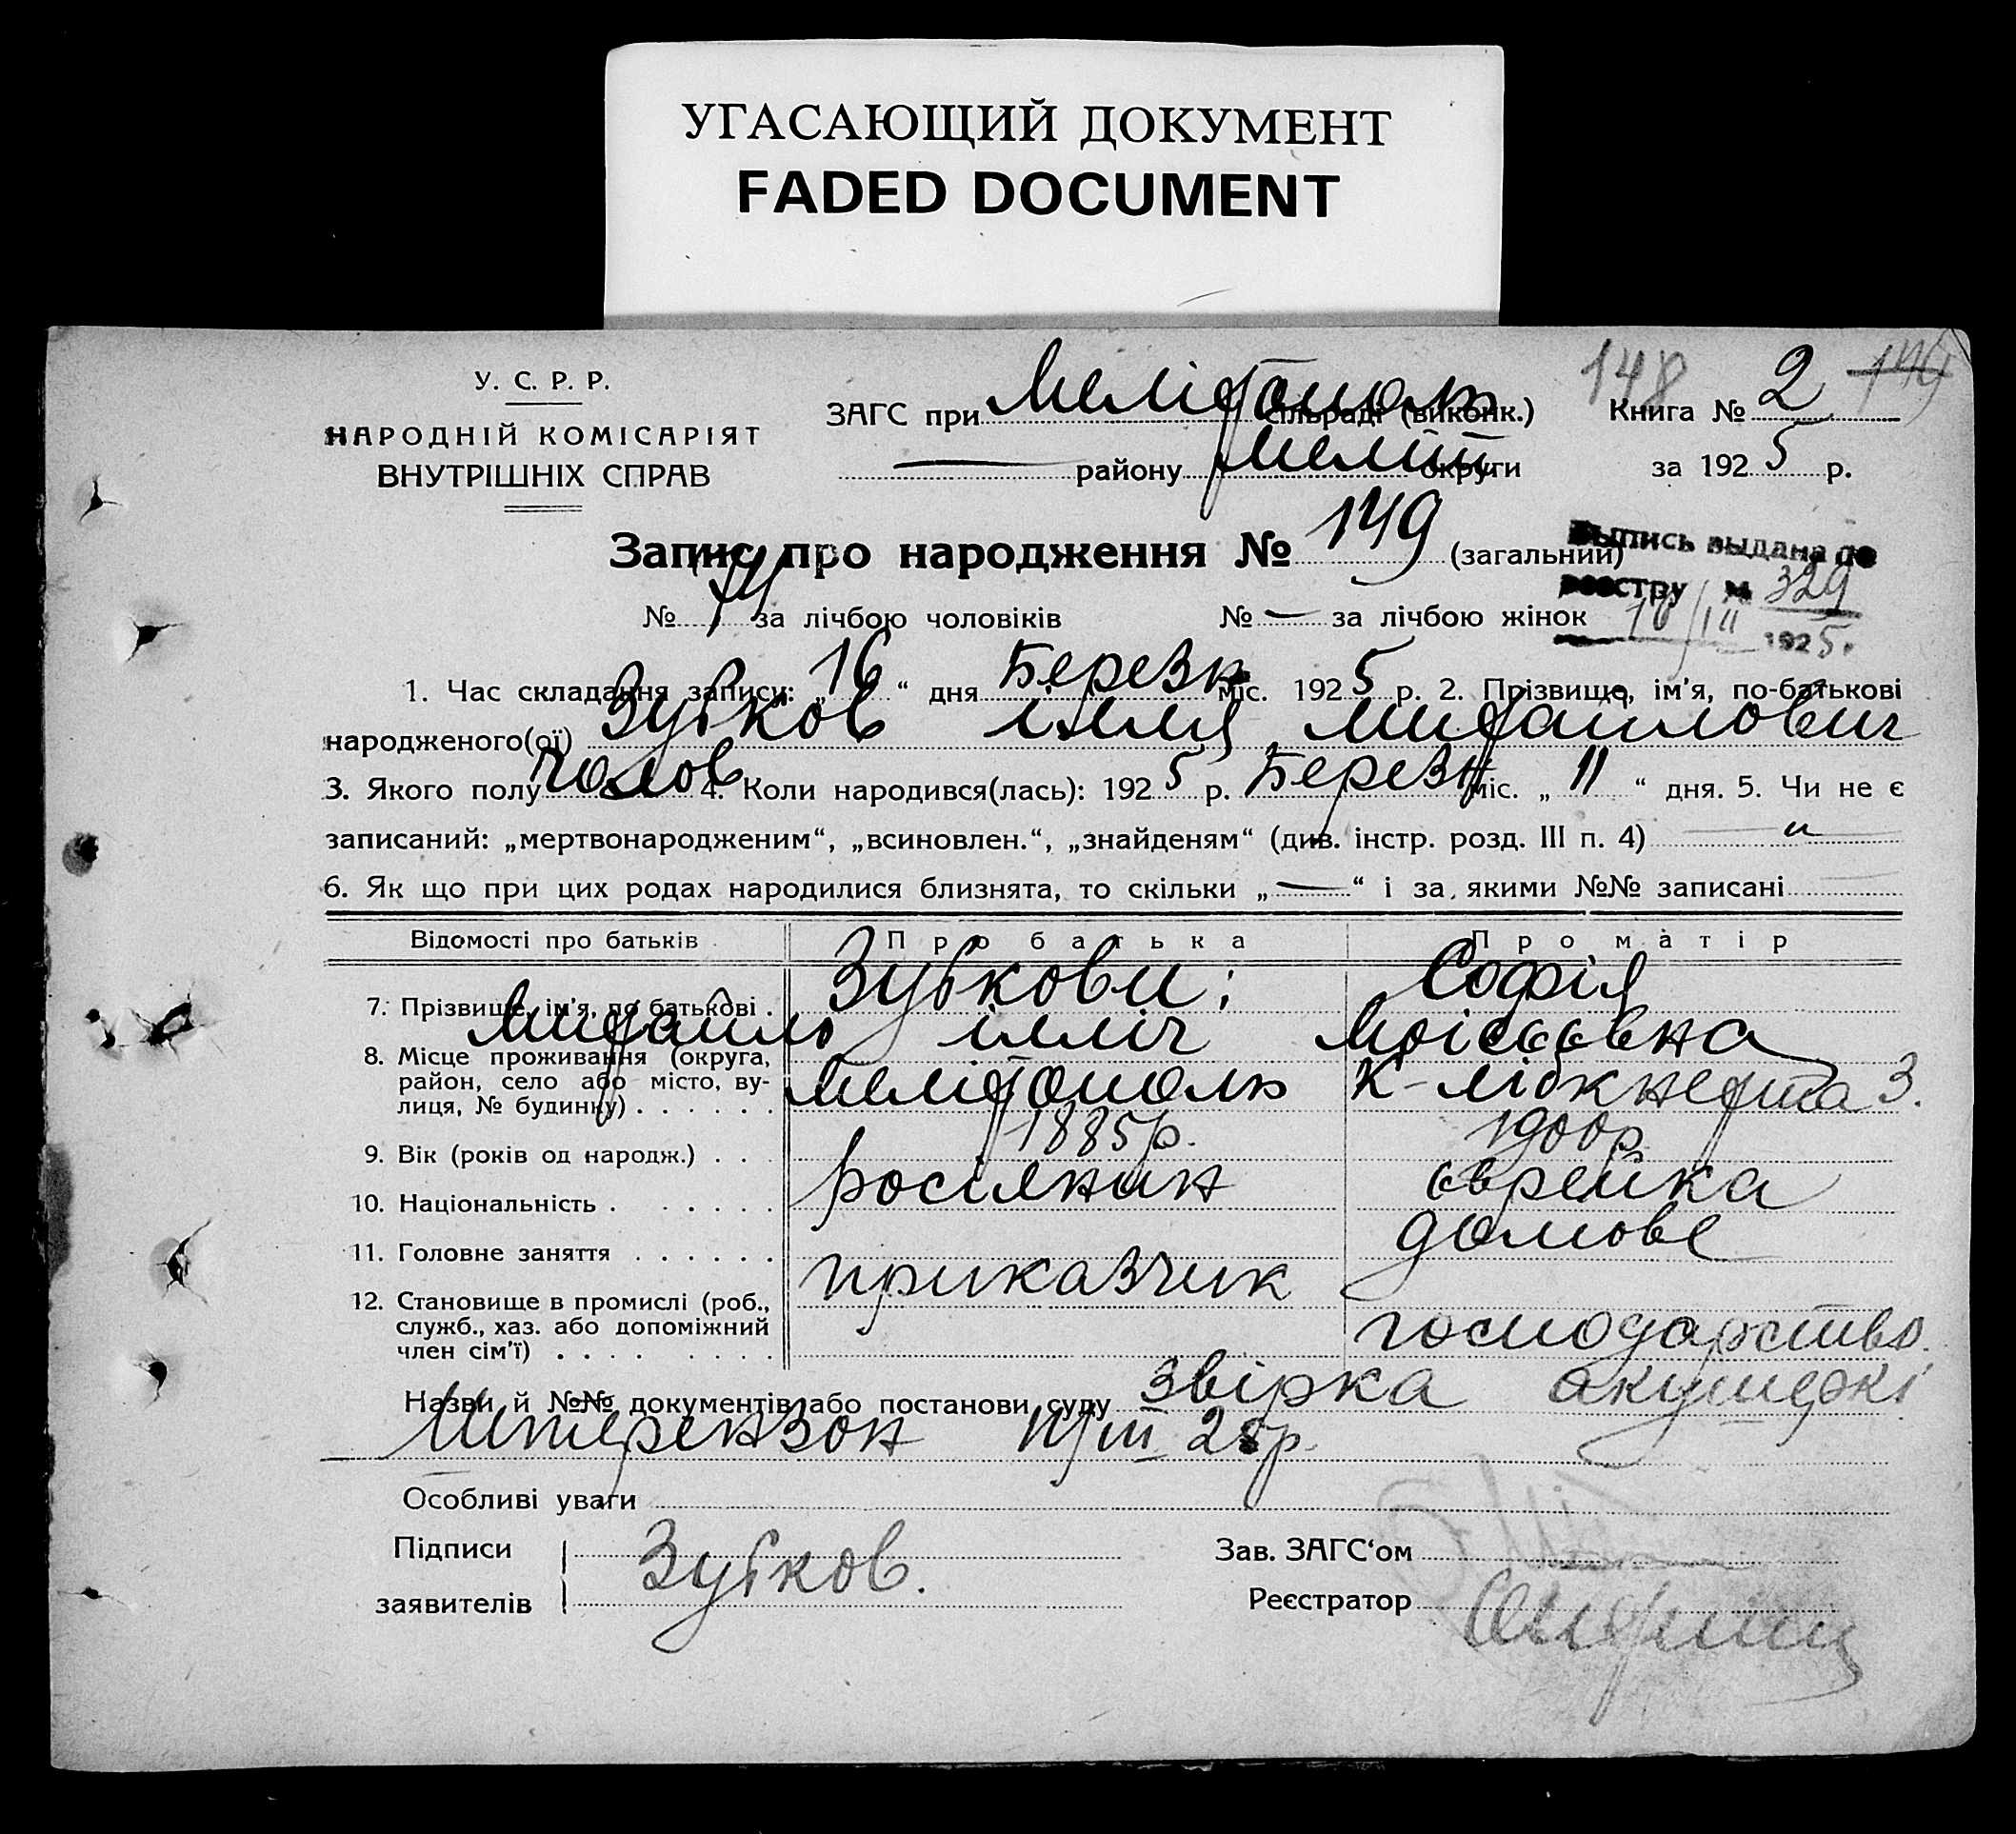 УГАСАЮЩИЙ ДОКУМЕНТ
FADED DOCUMENT
148 149
У. С. Р. Р.
НАРОДНІЙ КОМІСАРІЯТ
ВНУТРІШНІХ СПРАВ
ЗАГС при Мелітополь сільраді (виконк.) Книга № 2
— району Меліт округи за 1925 р.
Запис про народження № 149 (загальний)
Выпись выдана по
реестру № 329
1925 г.
№ за лічбою чоловіків № — за лічбою жінок
1. Час складання запису: „16“ дня Березн міс. 1925 р. 2. Прізвище, ім'я, по-батькові
народженого(ої) Зубков Ілля Михайлович
3. Якого полу Чолов 4. Коли народився(лась): 1925 р. Березн міс. „11“ дня. 5. Чи не є
записаний: „мертвонародженим“, „всиновлен.“, „знайденям“ (див. інстр. розд. III п. 4) — „ —
6. Як що при цих родах народилися близнята, то скільки „—“ і за якими №№ записані —
Відомості про батьків Про батька Про матір
7. Прізвище, ім'я, по батькові . Зубкови: Софія
Михайло Ілліч Моісеєвна
8. Місце проживання (округа,
район, село або місто, ву-
лиця, № будинку) . . . . . . Мелітополь К-Лібкнехта 3.
9. Вік (років од народж.) . . . 1885р. 1900р.
10. Національність . . . . . . росіянин єврейка
11. Головне заняття . . . . . . приказчик домове
12. Становище в промислі (роб.,
служб., хаз. або допоміжний
член сім'ї) . . . . . . . . господарство.
Назви й №№ документів або постанови суду Звірка акушерки
Штерензон III 25р.
Особливі уваги
Підписи
заявителів Зубков.
Зав. ЗАГС'ом
Реєстратор